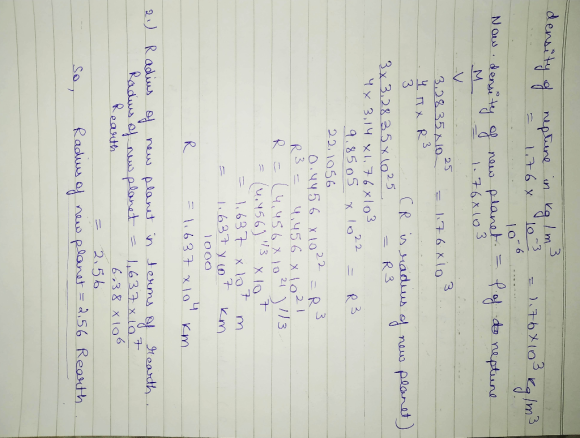 density of neptune in kg/m³
= 1.76 × 10⁻³ / 10⁻⁶ = 1.76×10³ kg/m³
Now, density of new planet = ρ of neptune
M / V = 1.76×10³
3.2835×10²⁵ / 4/3 π × R³ = 1.76×10³
(R is radius of new planet)
3×3.2835×10²⁵ / 4×3.14×1.76×10³ = R³
9.8505 × 10²² / 22.1056 = R³
0.4456 × 10²² = R³
R³ = 4.456 × 10²¹
R = (4.456×10²¹)1/3
= (4.456)^1/3 × 10⁷
= 1.637 × 10⁷ m
= 1.637×10⁷ / 1000 km
R = 1.637×10⁴ km
2.) Radius of new planet in terms of Rearth.
Radius of new planet / Rearth = 1.637×10⁷ / 6.38×10⁶
= 2.56
So, Radius of new planet = 2.56 Rearth.